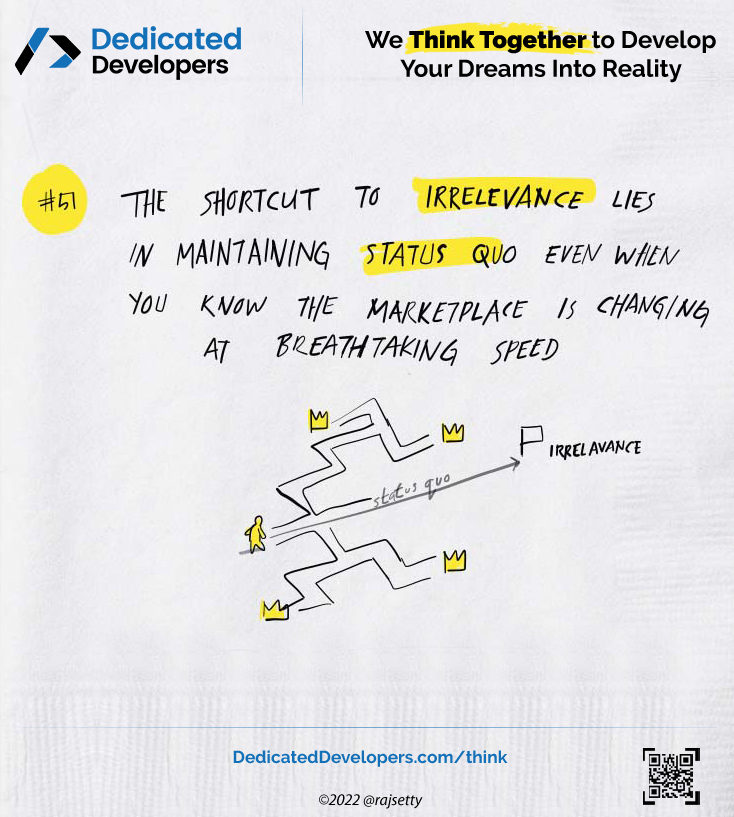 Dedicated
Developers
We Think Together to Develop
Your Dreams Into Reality
#51
THE SHORTCUT TO IRRELEVANCE LIES
IN MAINTAINING STATUS QUO EVEN WHEN
YOU KNOW THE MARKETPLACE IS CHANGING
AT BREATHTAKING SPEED
IRRELAVANCE
status quo
DedicatedDevelopers.com/think
©2022 @rajsetty